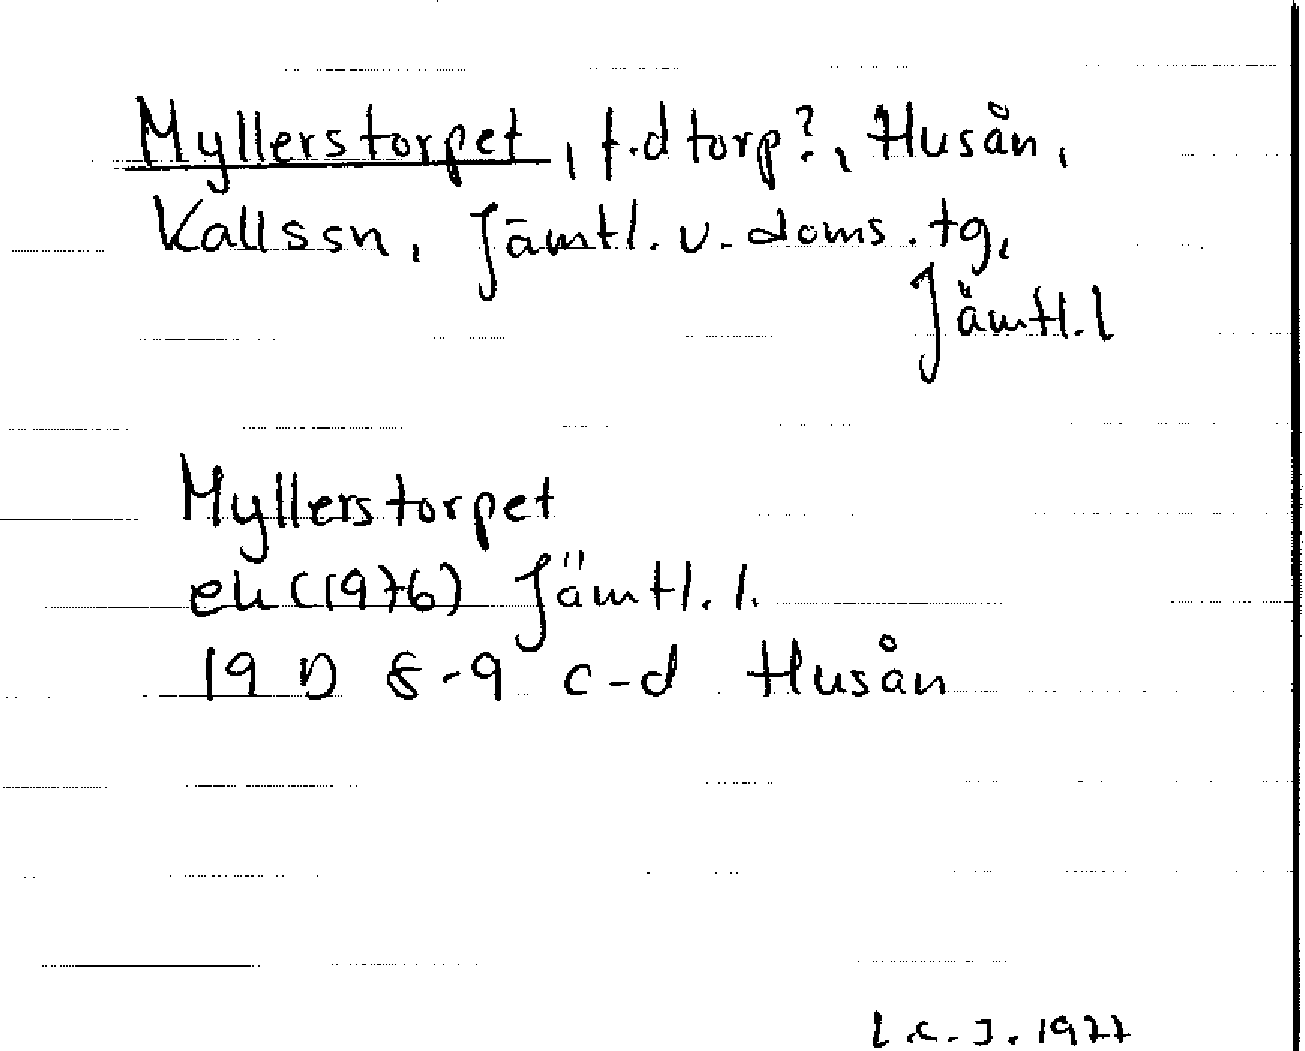 Myllerstorpet, f.d torp?, Husån,
Kallssn, Jämtl. v. doms. tg,
Jämtl. l
Myllerstorpet
ek (1976) Jämtl. l.
19 D 8-9 c-d Husån
L.C.J. 1977